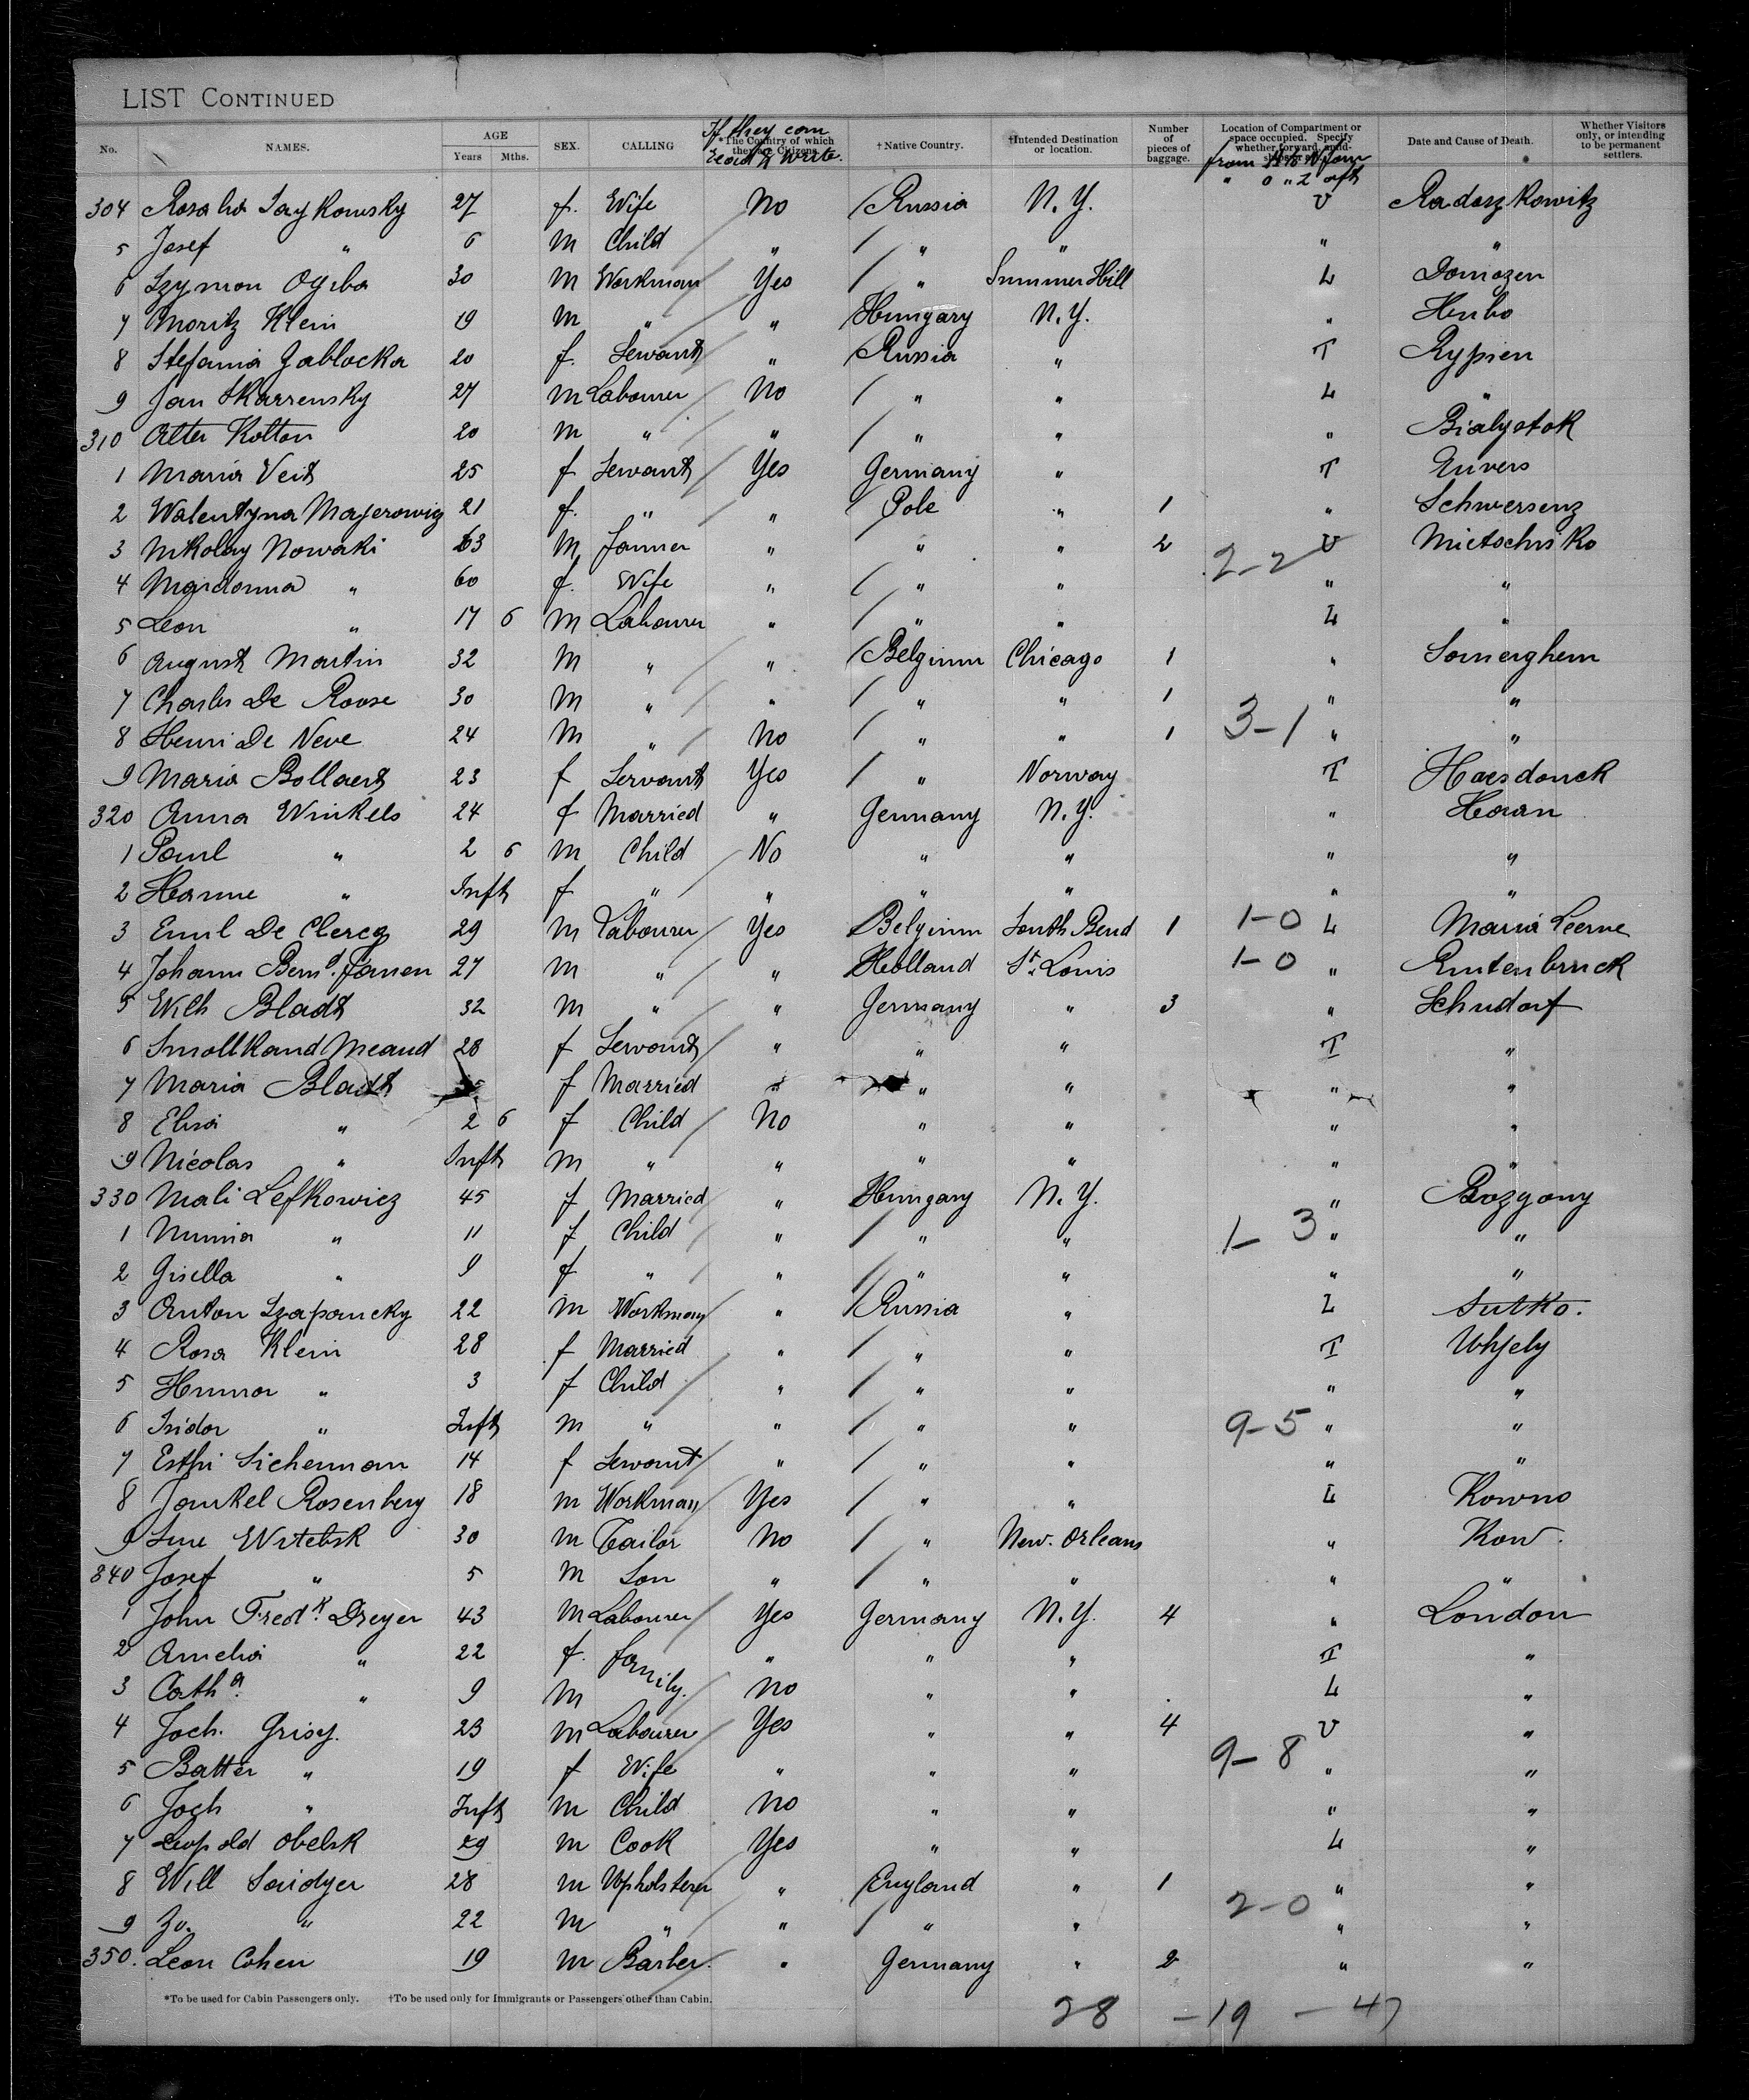 LIST CONTINUED
No. NAMES. AGE Years Mths. SEX. CALLING *The Country of which they are Citizens. If they can read & write. †Native Country. †Intended Destination or location. Number of pieces of baggage. Location of Compartment or space occupied. Specify whether forward, Date and Cause of Death. Whether Visitors only, or intending to be permanent settlers.
" 0 " 2 aft
304 27 f. Wife No Russia N.Y. v Radoszkowitz
5 Josef " 6 M Child " " " " "
6 Szymon Ogiba 30 M Workman Yes " Summer Hill L Domozen
7 Moritz Klein 19 M " " Hungary N.Y. "
8 Stefania Zablocka 20 f. Servant " Russia " T Rypien
9 Jan Skarrensky 27 M Labourer No " " L "
310 Alter Kolton 20 M " " " " " Bialystok
1 Maria Veit 25 f Servant Yes Germany " T
2 Walentyna Majerowig 21 f. " " Pole " 1 " Schwersenz
3 Nikolay Nowaki 63 M Farmer " " " 2 2-2 v Mietschisko
4 " 60 f. Wife " " " " "
5 Leon " 17 6 M Labourer " " " L "
6 August Martin 32 M " " Belgium Chicago 1 " Somerghem
7 Charles De Roose 30 M " " " " 1 " "
8 Henri De Neve 24 M " No " " 1 3-1 " "
9 Maria Bollaert 23 f Servant Yes " Norway T Haesdonck
320 Anna Winkels 24 f Married " Germany N.Y. " Haan
1 Paul " 2 6 M Child No " " " "
2 Hanne " Inft f " " " " " "
3 Emil De Clercq 29 M Labourer Yes Belgium South Bend 1 1-0 L Maria Leerne
4 Johann Bernd. Jansen 27 M " " Holland St. Louis 1-0 "
5 Wilh Bladt 32 M " " Germany " 3 " Schudorf
6 Smollkand Meaud 28 f Servant " " " T "
7 Maria Bladt f Married " " " " "
8 Elisa " 2 6 f Child No " " " "
9 Nicolas " Inft M " " " " " "
330 Mali Lefkowicz 45 f Married " Hungary N.Y. "
1 " 11 f Child " " " 1-3 " "
2 Gisella " 9 f " " " " " "
3 Anton Szapancky 22 M Workman " Russia " L Sutko.
4 Rosa Klein 28 f Married " " " T Uhjely
5 " 3 f Child " " " " "
6 Isidor " Inft M " " " " 9-5 " "
7 Esthi Sicherman 14 f Servant " " " " "
8 Jankel Rosenberg 18 M Workman Yes " " L Kowno
9 Witebsk 30 M Tailor No " New. Orleans " Kow.
340 Josef " 5 M Son " " " " "
1 John Fredk. Dreyer 43 M Labourer Yes Germany N.Y. 4 " London
2 Amelia " 22 f. family. " " " T "
3 Catha. " 9 M No " " L "
4 Joch. Grisy. 23 M Labourer Yes " " 4 v "
5 Batter " 19 f Wife " " " 9-8 " "
6 Joch " Inft M Child No " " " "
7 Leopold Obelsk 29 M Cook Yes " " L "
8 Will Saidyer 28 M Upholsterer " England " 1 " "
9 " 22 M " " " " 2-0 " "
350. Leon Cohen 19 M Barber. " Germany " 2 " "
*To be used for Cabin Passengers only. †To be used only for Immigrants or Passengers other than Cabin.
28 -19 - 47